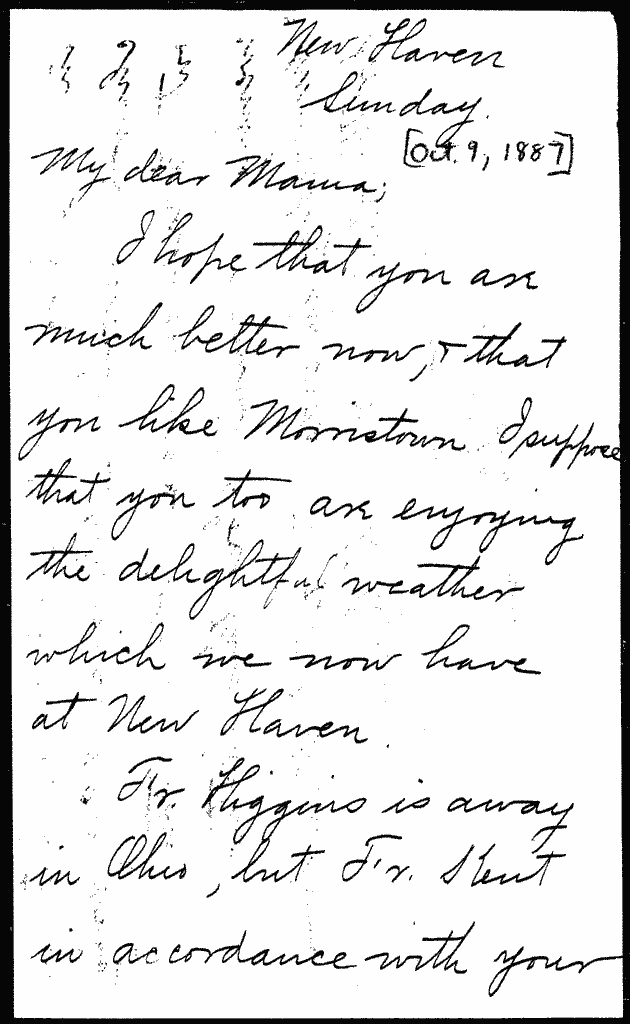 New Haven
Sunday.
[Oct. 9, 1887]
My dear Mama,
I hope that you are
much better now, & that
you like Morristown I suppose
that you too are enjoying
the delightful weather
which we now have
at New Haven.
Fr. Higgins is away
in Ohio, but Fr. Kent
in accordance with your